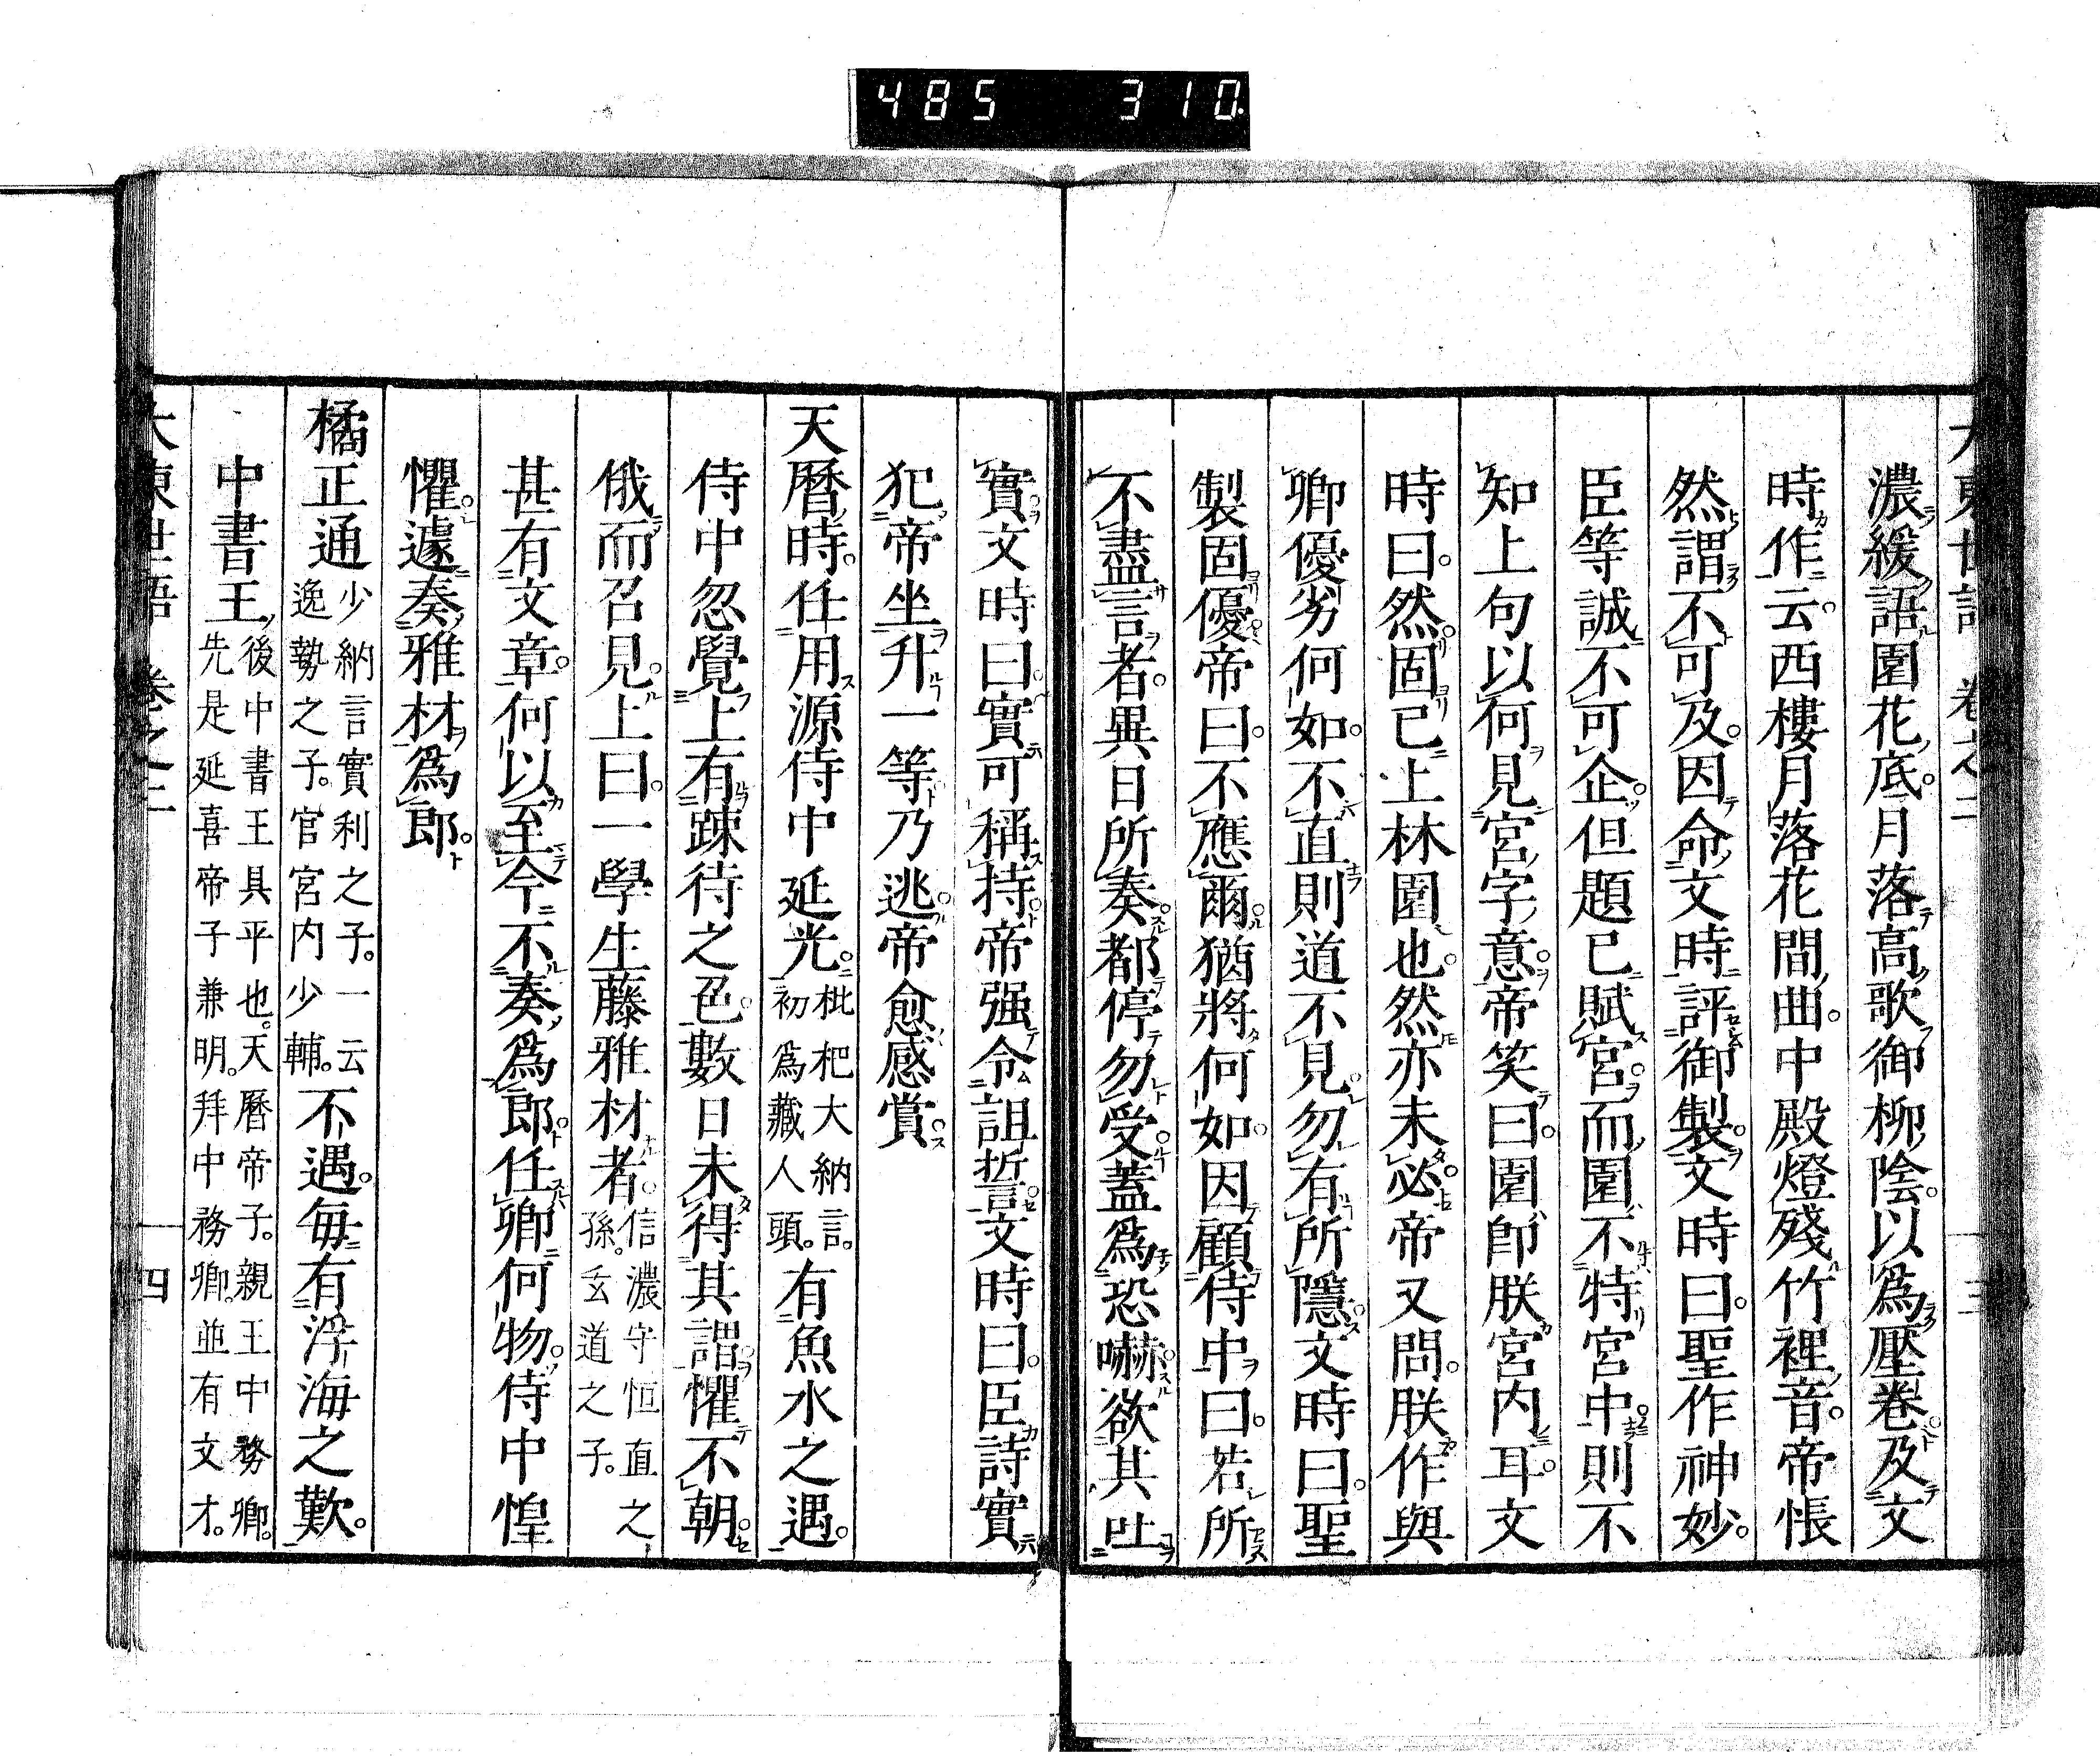 485 310
大東世語 卷之二 三
濃緩語園花底。月落高歌御柳陰。以爲壓卷及文
時作云。西樓月落花間曲。中殿燈殘竹裡音。帝悵
然謂不可及。因命文時評御製。文時曰。聖作神妙。
臣等誠不可企。但題已賦宮而園不特宮中則不
知上句以何見宮字意。帝笑曰。園即朕宮内耳。文
時曰。然固已上林園也。然亦未必。帝又問。朕作與
卿優劣何如。不直則道不見。勿有所隱。文時曰。聖
製固優。帝曰。不應爾。猶將何如。因顧侍中曰。若所
不盡言者。異日所奏都停勿受。蓋爲恐嚇欲其吐
實。文時曰。實可稱持。帝强令詛誓。文時曰。臣詩實
犯帝坐升一等。乃逃。帝愈感賞。
天曆時。任用源侍中延光。枇杷大納言。初爲藏人頭。有魚水之遇。
侍中忽覺上有踈待之色。數日未得其謂。懼不朝。
俄而召見。上曰。一學生藤雅材者。信濃守恒直之孫。玄道之子。
甚有文章。何以至今不奏爲郎。任卿何物。侍中惶
懼。遽奏雅材爲郎。
橘正通少納言實利之子。一云逸勢之子。官宮内少輔。不遇。每有浮海之歎。
中書王、後中書王具平也。天曆帝子。親王中務卿。先是延喜帝子兼明。拜中務卿。並有文才。
大東世語 卷之二 四